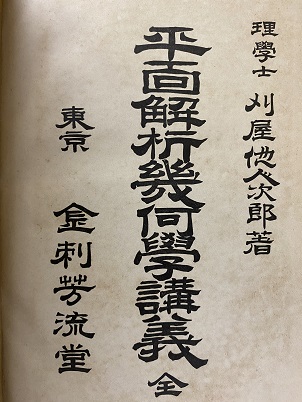 理學士 刈屋他人次郎著
平面解析幾何學講義 全
東京 金刺芳流堂